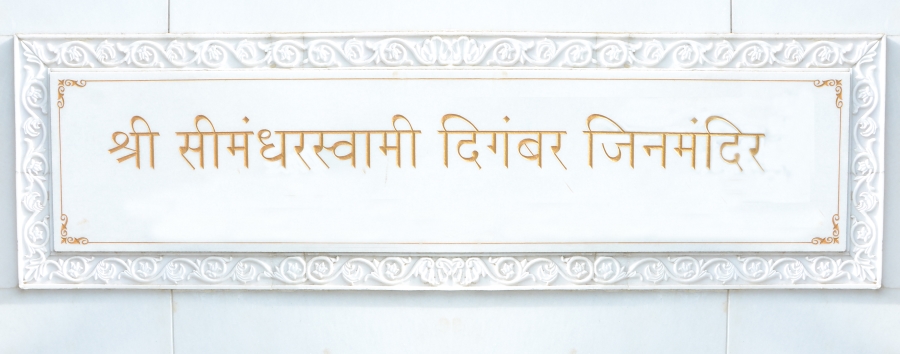 श्री सीमंधरस्वामी दिगंबर जिनमंदिर